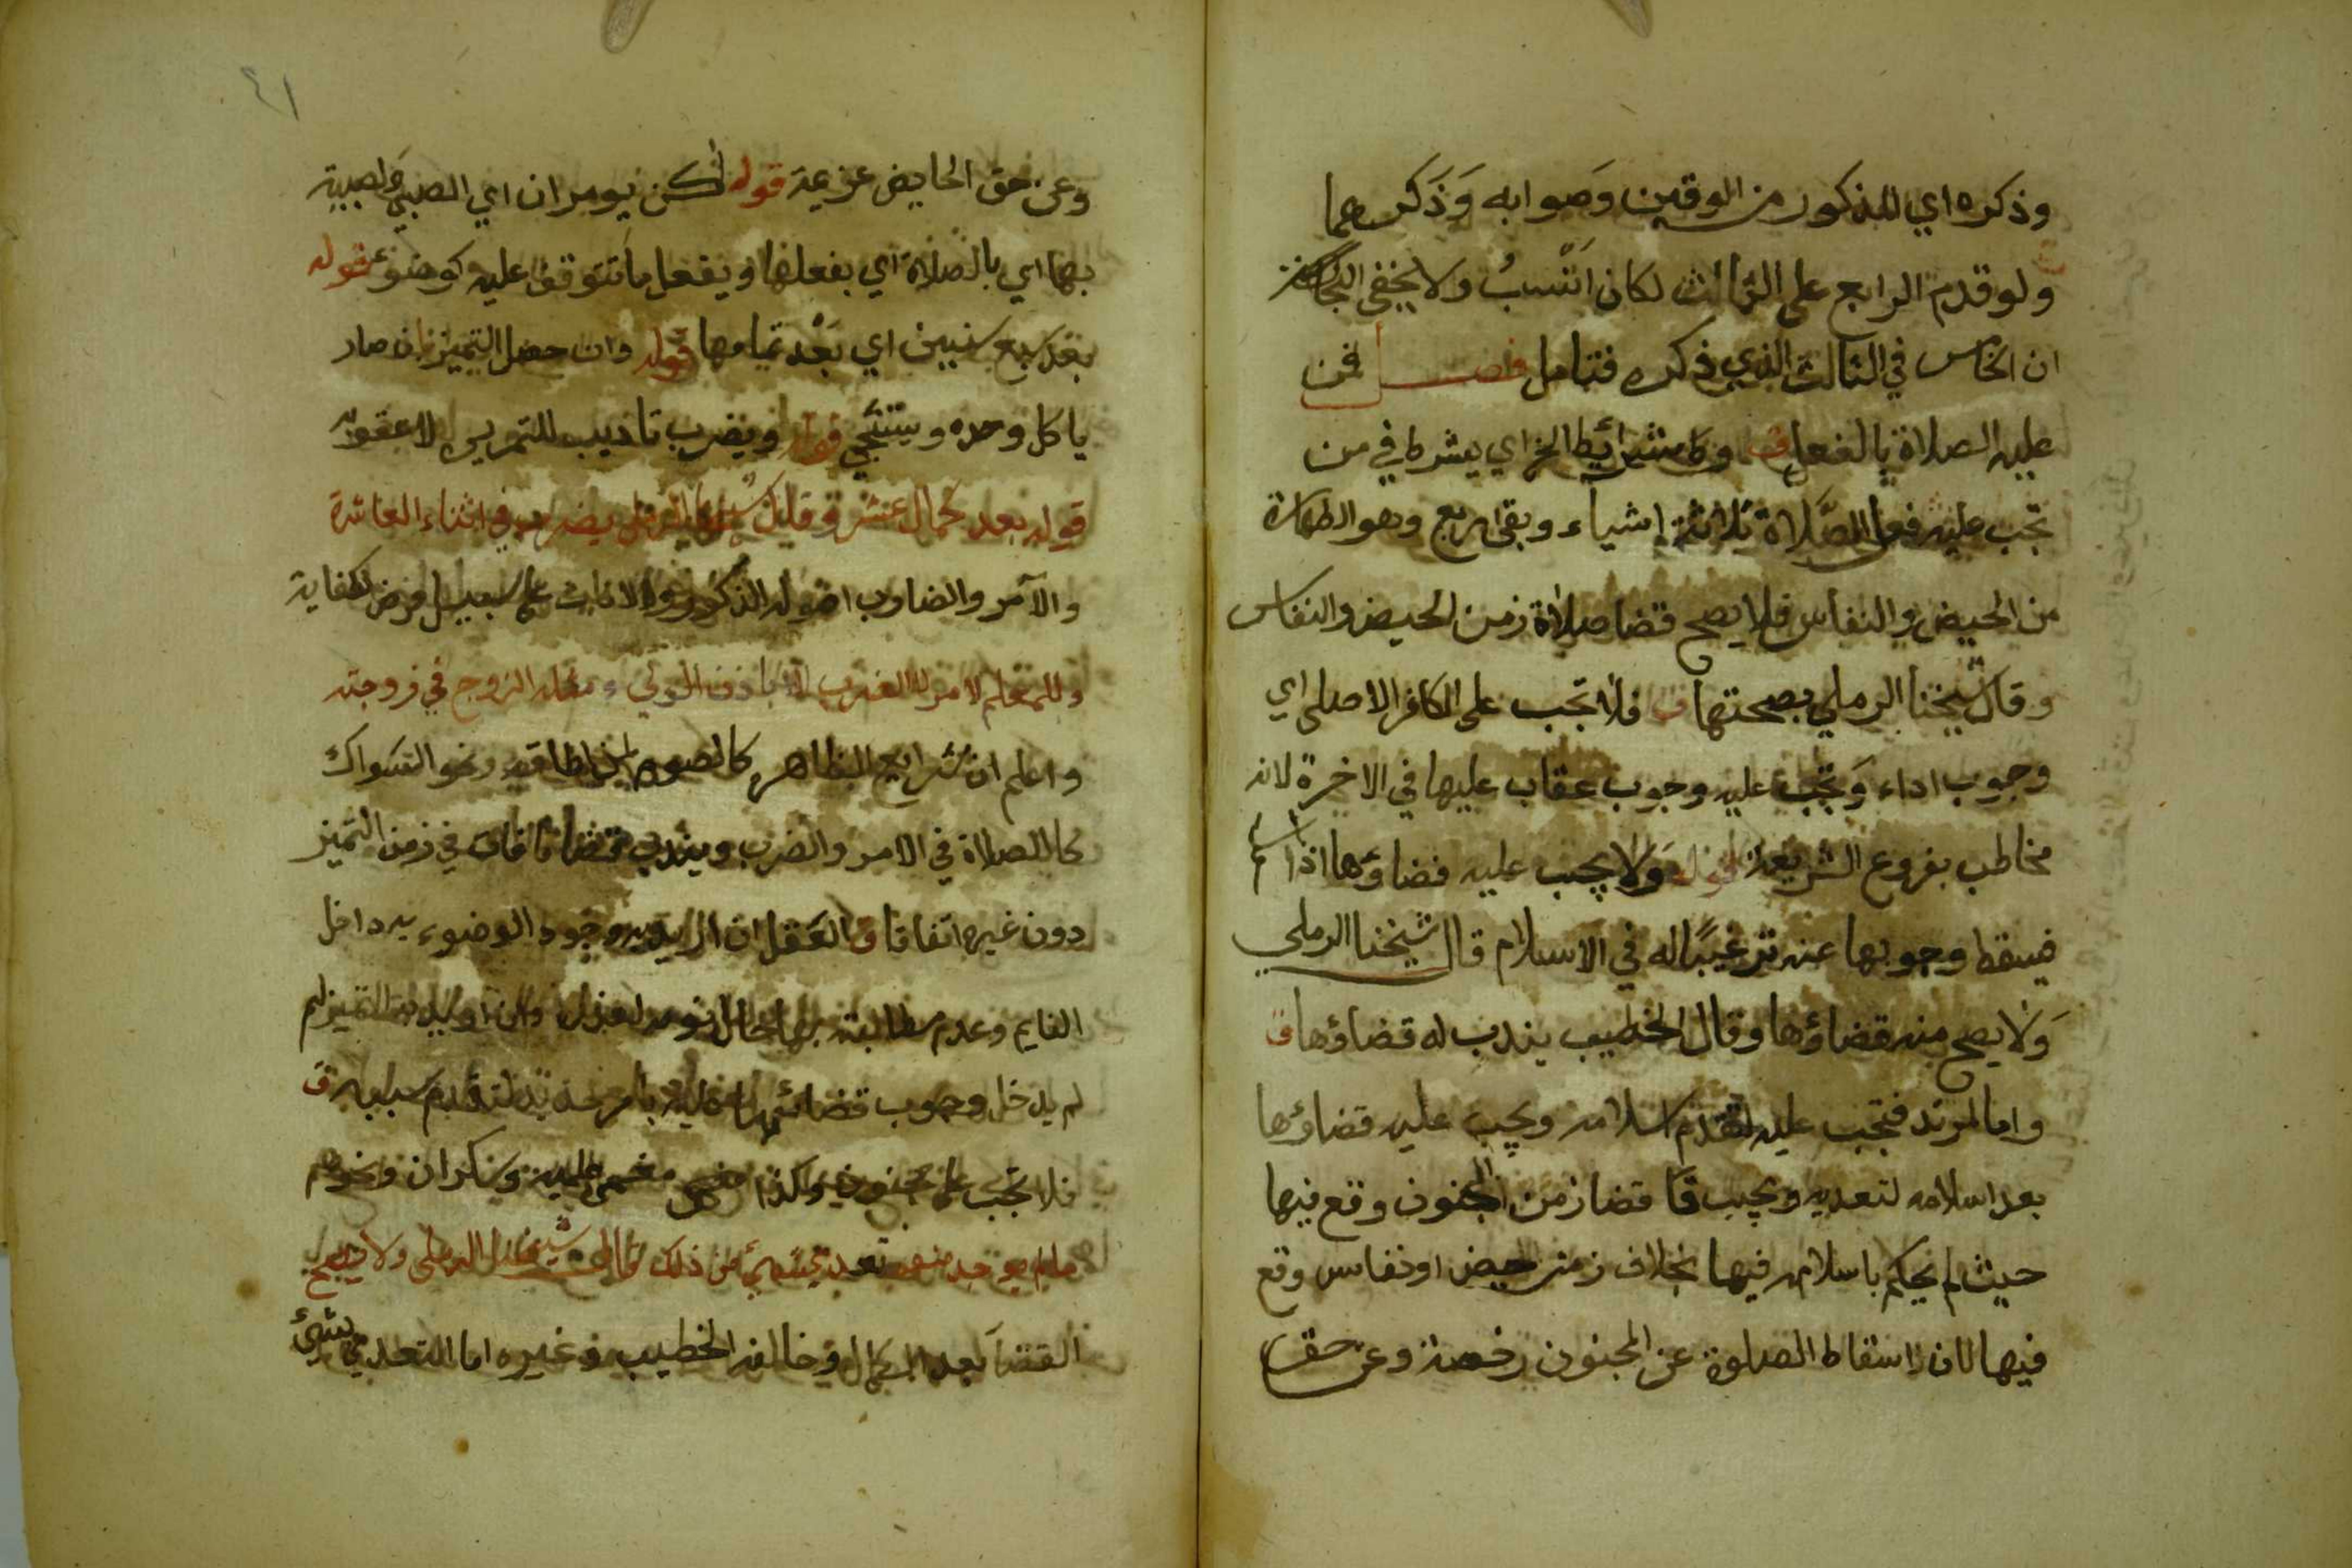 وذكره اي المذكور من الوقتين وصوابه وذكرهما
ولو قدم الرابع على الثالث لكان انسب ولا يخفى
ان الخامس في الثالث الذي ذكره فتامل فصل فمن
عليه الصلاة بالفعل ق وكا شرائط الخ اي يشرط في من
تجب عليه فعل الصلاة ثلاثة اشياء وبقي اربع وهو الطهارة
من الحيض والنفاس فلا يصح قضا صلاة زمن الحيض والنفاس
وقال شيخنا الرملي بصحتها ق فلا تجب على الكافر الاصلي اي
وجوب اداء وتجب عليه وجوب عقاب عليها في الاخرة لانه
مخاطب بفروع الشريعة قوله ولا يجب عليه قضاؤها اذا اسلم
فيسقط وجوبها عنه ترغيبًا له في الاسلام قال شيخنا الرملي
ولا يصح منه قضاؤها وقال الخطيب يندب له قضاؤها ق
واما المرتد فتجب عليه لتقدم اسلامه ويجب عليه قضاؤها
بعد اسلامه لتعديه ويجب قا قضا زمن الجنون وقع فيها
حيث لم يحكم باسلامه فيها بخلاف زمن حيض او نفاس وقع
فيها لان اسقاط الصلوة عن المجنون رخصة وعن حق
٤١
وعن حق الحايض عزيمة قوله لكن يومران اي الصبي والصبية
بها اي بالصلاة اي بفعلها ويفعل ما تتوقف عليه كوضوء قوله
بعد سبع سنين اي بعد تمامها قوله وان حصل التميز بان صار
ياكل وحده ويستنجي قوله ويضرب تاديب للتمرين لا عقوبة
قوله بعد كمال عشر وقال شيخنا الرملي يضرب في اثناء العاشرة
والآمر والضارب اصوله الذكور والاناث على سبيل فرض الكفاية
وللمعلم الامر لا الضرب الا باذن الولي ومثله الزوج في زوجته
واعلم ان شرايع الظاهره كالصوم لمن اطاقه ونحو السواك
كالصلاة في الامر والضرب ويندب قضا ما فات في زمن التميز
دون غيره اتفاقا ق العقل ان اريد به وجود الوضوء به داخل
النايم وعدم مطالبته بها حال نومه لعذره وان اريد به التميز لم
لم يدخل ووجوب قضائها عليه بامر جديد لتقدم سببه ق
فلا تجب على مجنون وكذا مغمى عليه وسكران ونحوهم
ما لم يوجد منهم تعد بشيء من ذلك قال شيخنا الرملي ولا يصح
القضا بعد الكمال وخالفه الخطيب وغيره اما المتعدي بشيء